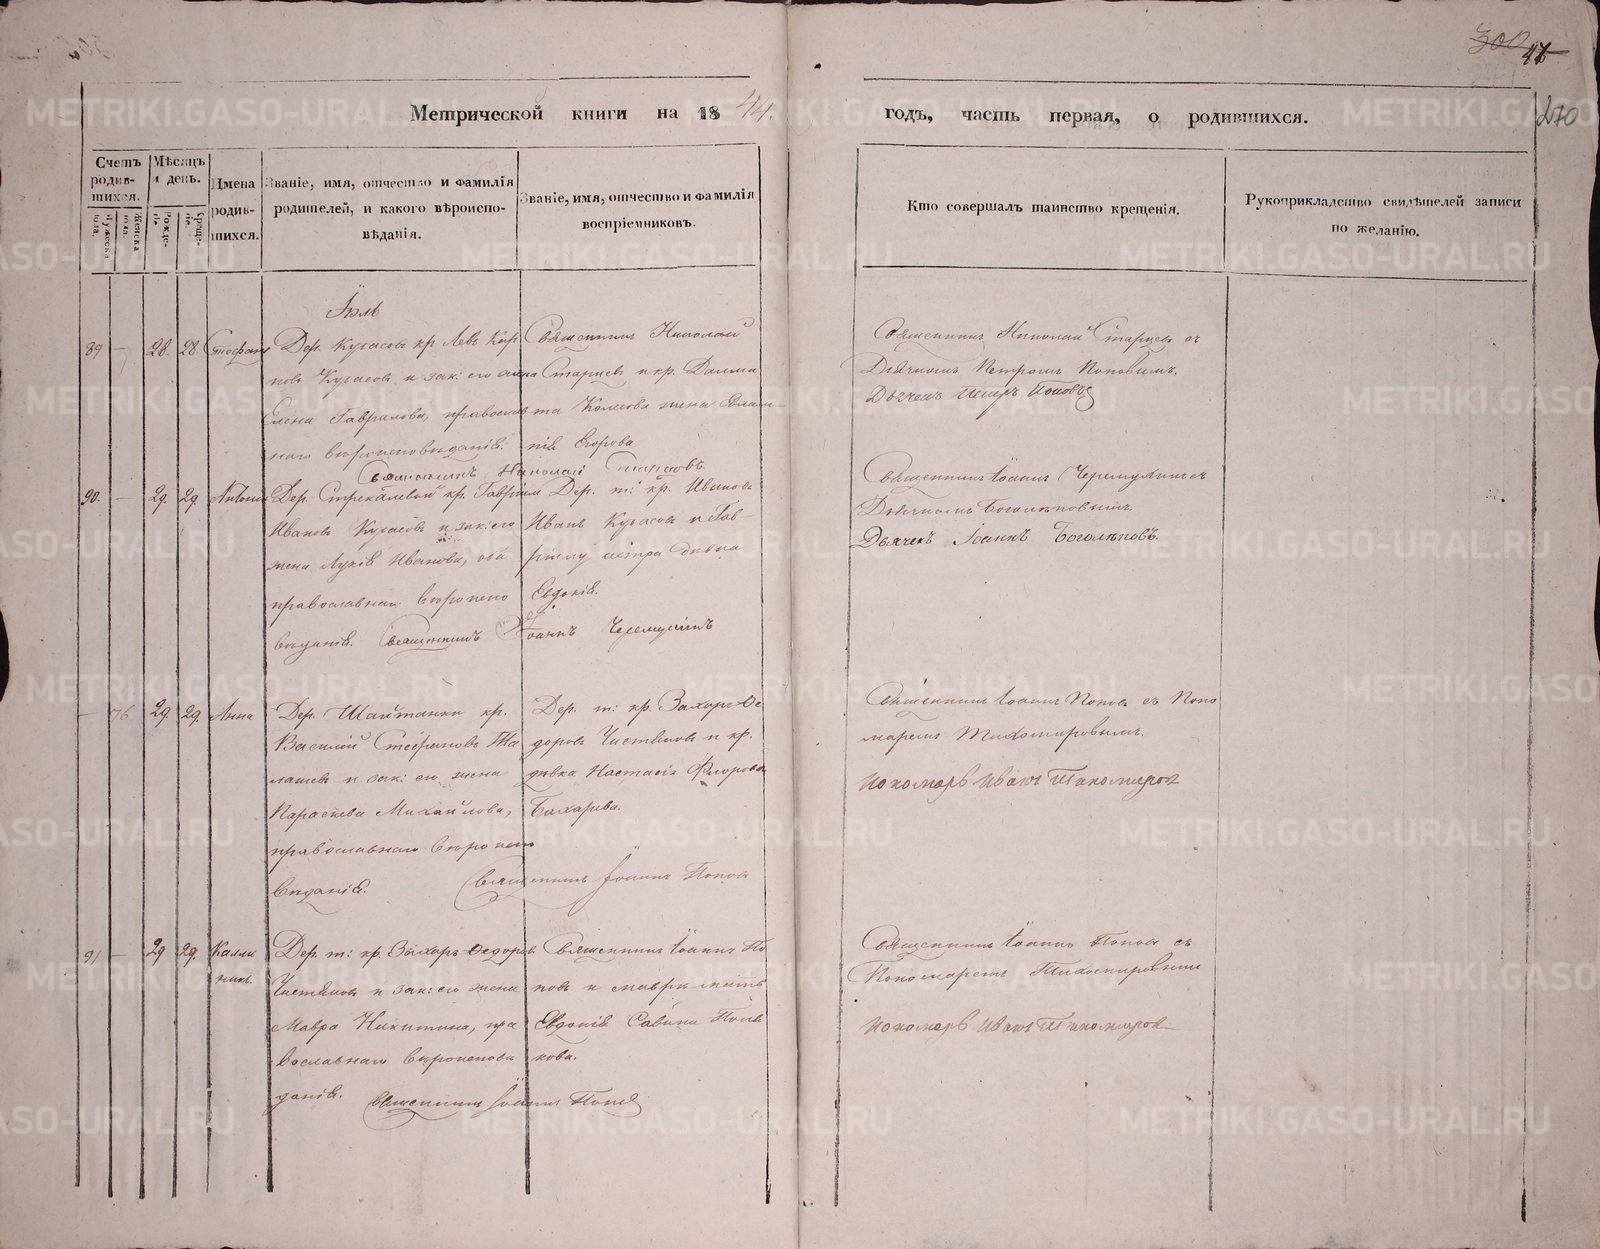 300 47
270
Метрической книги на 1844. годъ, часть первая, о родившихся.
Счетъ родив-шихся.
Мужеска пола.
Женска пола.
Мѣсяцъ и день.
Рожде-нія.
Креще-нія.
Имена родив-шихся.
Званіе, имя, отчество и фамилія родителей, и какого вѣроиспо-вѣданія.
Званіе, имя, отчество и фамилія воспріемниковъ.
Кто совершалъ таинство крещенія.
Рукоприкладство свидѣтелей записи по желанію.
Іюль
89 — 28 28 Стефанъ
Дер. Кугасовъ кр. Левъ Кар
повъ Кугасовъ и зак: его жена
Елена Гаврилова, православ
наго вѣроисповѣданія.
Священникъ Николай
Старцевъ и кр.
Егорова
Священникъ Николай Старцовъ
Священникъ Николай Старцевъ съ
Дьячкомъ Петромъ Поповымъ.
Дьячекъ Петръ Поповъ
90. — 29. 29. Антоній
Дер. Стрекалевой кр. Гавріилъ
Ивановъ Кугасовъ и зак: его
жена Ивановна, оба
православнаго вѣроиспо
вѣданія.
Дер. т: кр. Ивановъ
Иванъ Кугасовъ и Гав-
рилу сестра дѣвка
Евдокія.
Священникъ Іоаннъ Черемухинъ
Священникъ Іоаннъ Черемухинъ съ
Дьячкомъ Боголѣповымъ.
Дьячекъ Іоаннъ Боголѣповъ.
— 76 29. 29. Анна
Дер. Шайтанки кр.
Василій Стефановъ Та
лашевъ и зак: его жена
Параскева Михайлова,
православнаго вѣроиспо
вѣданія.
Дер. т: кр. Захаръ Ѳе
доровъ Чистяковъ и кр.
дѣвка Настасія Флорова
Бахарева.
Священникъ Іоаннъ Поповъ
Священникъ Іоаннъ Поповъ съ Поно
маремъ Тихомировымъ.
Пономарь Иванъ Тихомировъ
91 — 29 29. Калли
никъ.
Дер. т: кр. Захаръ Ѳедоровъ
Чистяковъ и зак: его жена
Мавра Никитина, пра
вославнаго вѣроисповѣ
данія.
Священникъ Іоаннъ По
повъ и
Евдокія Савина Поля
кова.
Священникъ Іоаннъ Поповъ
Священникъ Іоаннъ Поповъ съ
Пономаремъ Тихомировымъ
Пономарь Иванъ Тихомировъ
METRIKI.GASO-URAL.RU